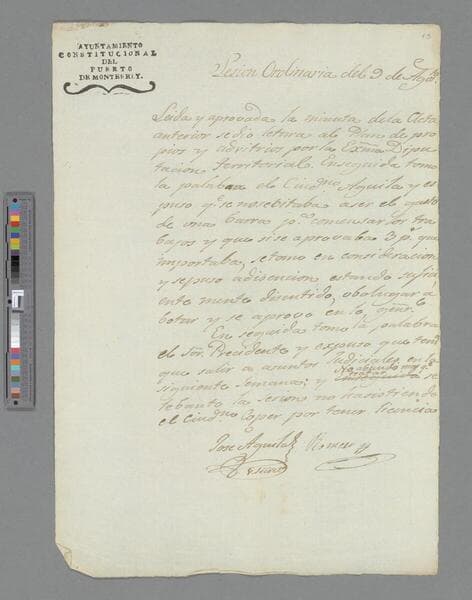 13
AYUNTAMIENTO
CONSTITUCIONAL
DEL
PUERTO
DE MONTERREY.
Sesion Ordinaria del 9 de Agto.
Leida y aprovada la minuta de la Acta
anterior se dio letura al Plan de pro
pios y advitrios por la Exma Dipu
tacion Territorial. Enseguida tomo
la palabra el Ciudno Aguila y es
puso qe. se nesesitaba aser el gasto
de una barra pa. comensar los tra
bajos y que si se aprovaba 3 ps. que
importaba, se tomo en consideracion
y se puso adiscucion estando sufisi
ente mente discutido, ubo lugar á
botar y se aprovo en lo
En seguida tomo la palabra
el Sor. Precidente y expuso que
que salir a asuntos Judiciales en la
siguiente semana; y no abiendo mas qe.
tratar se
lebanto la sesion no hasistiendo
el Ciudno Coper por tener licencia
Jose Aguila Romero
Srio